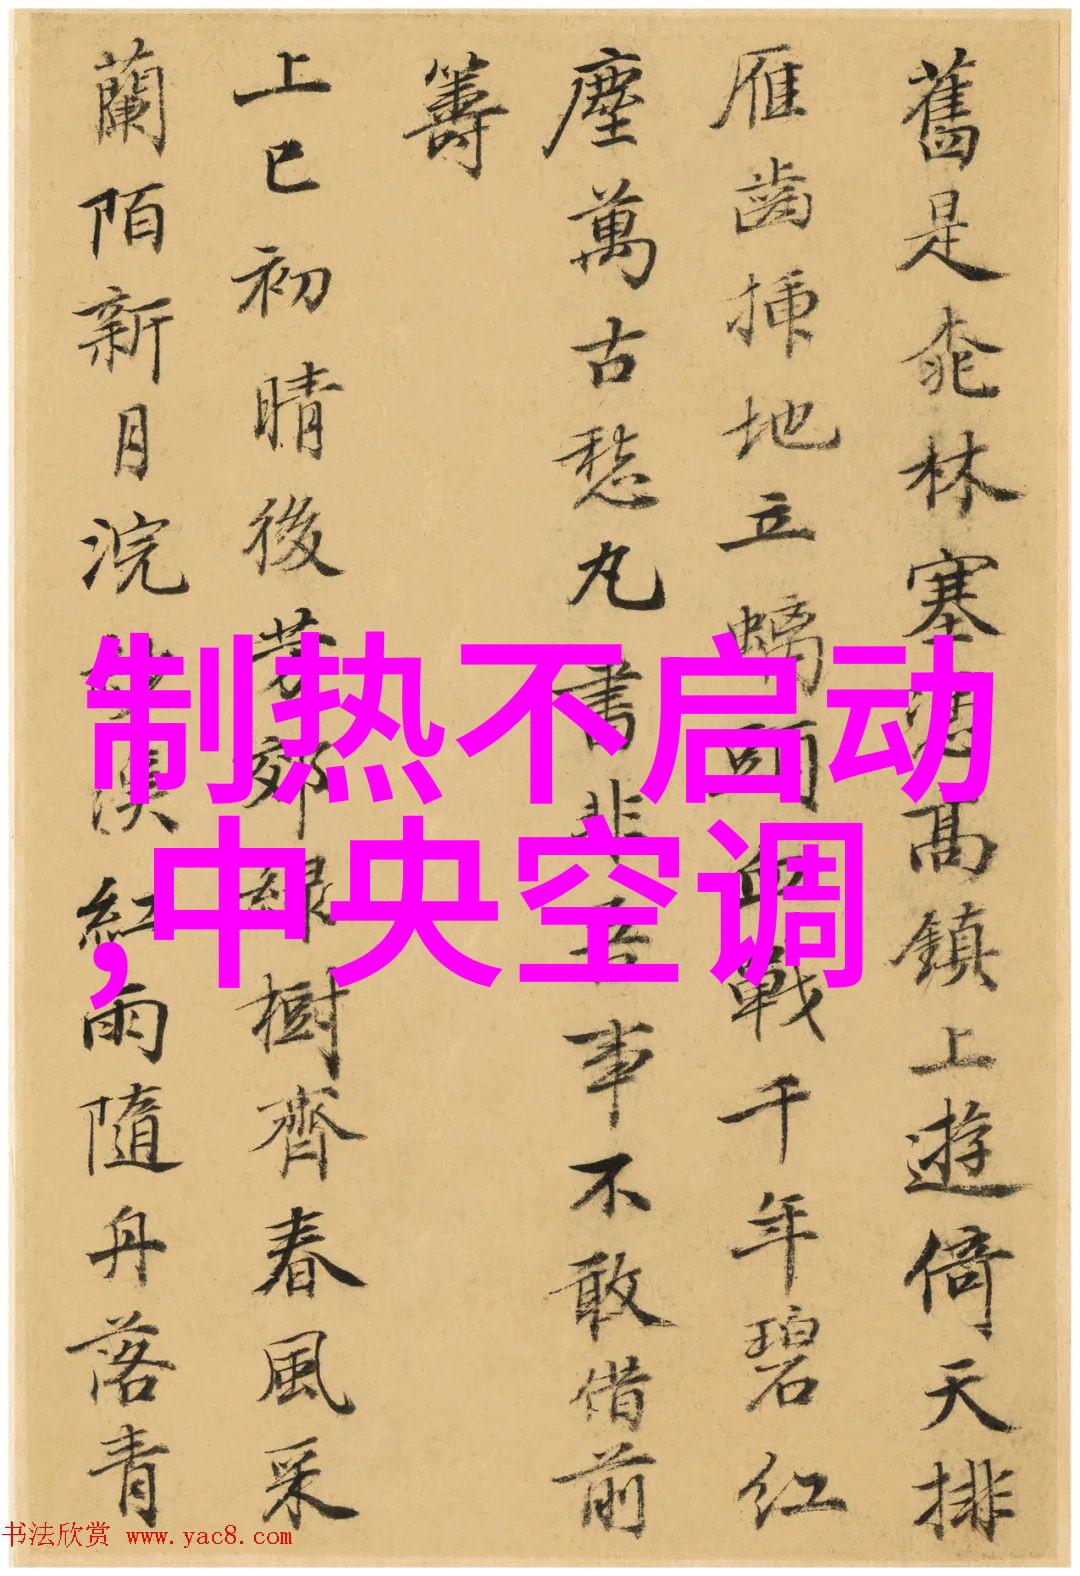 舊是桃林塞高鎮上遊倚天排
雁齒插地立螭頭血戰千年碧紅
塵萬古愁丸書非吾事不敢借前
籌
上巳初晴後芳郊綠樹齊春風采
蘭陌新月浣溪紅雨隨舟落青
制热不启动
,中央空调
书法欣赏 www.yac8.com